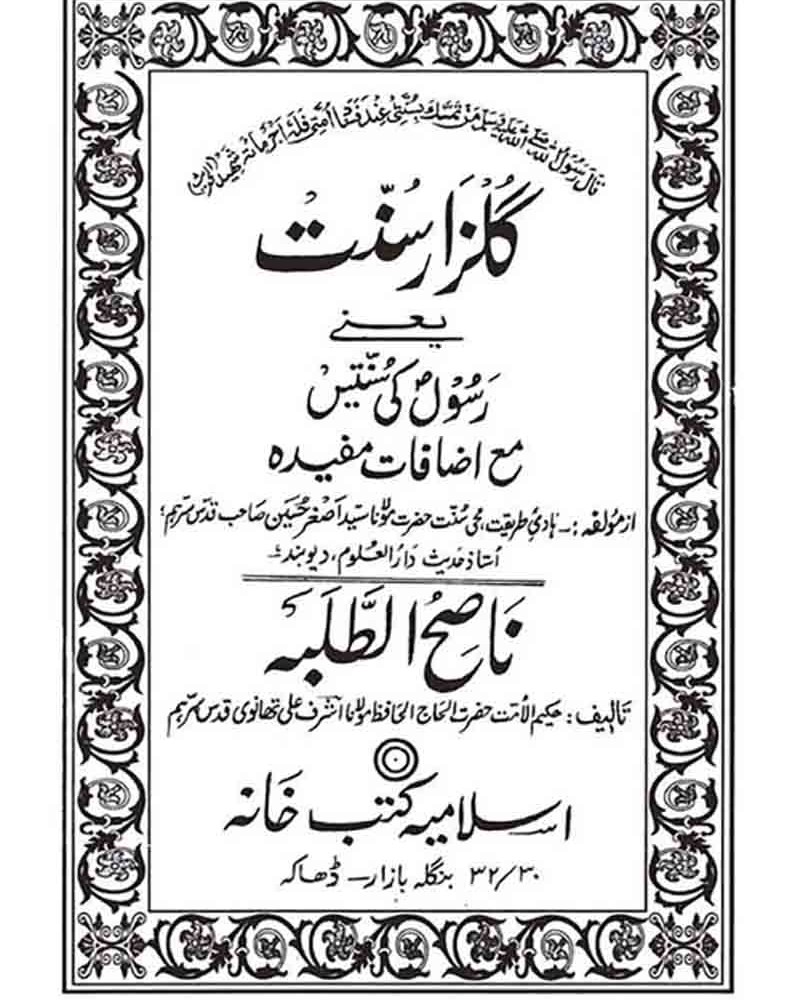 قَالَ رَسُوْلُ اللّٰهِ صَلَّى اللّٰهُ عَلَيْهِ وَسَلَّمَ مَنْ تَمَسَّكَ بِسُنَّتِیْ عِنْدَ فَسَادِ اُمَّتِیْ فَلَهٗ اَجْرُ مِائَةِ شَهِیْدٍ (الحدیث)
گلزارِ سُنّت
یعنے
رَسُوْلؐ کی سُنّتیں
مع اضافات مفیدہ
از مؤلفہ :۔ ہادیِ طریقت، محیِ سُنّت حضرت مولانا سید اصغر حُسین صاحب قدس سرہم
اُستاذ حَدیث دَارُ العُلوم، دیوبند
نَاصِحُ الطَّلَبَہ
تالیف : حکیم الاُمت حضرت الحاج الحافظ مولانا اشرف علی تھانوی قدس سرہم
اسلامیہ کتب خَانہ
۳۲/۳۰ بنگلہ بازار— ڈھاکہ